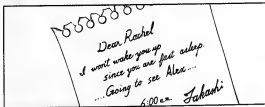 Dear Rachel
I won't wake you up
since you are fast asleep.
....Going to see Alex....
6:00 a.m. Takashi